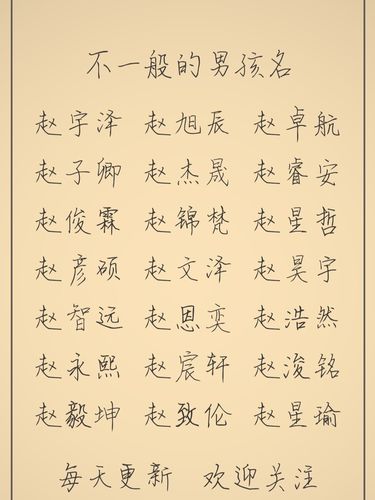 不一般的男孩名
赵宇泽 赵旭辰 赵卓航
赵子卿 赵杰晟 赵睿安
赵俊霖 赵锦梵 赵星哲
赵彦硕 赵文泽 赵昊宇
赵智远 赵恩奕 赵浩然
赵永熙 赵宸轩 赵浚铭
赵毅坤 赵致伦 赵星瑜
每天更新 欢迎关注